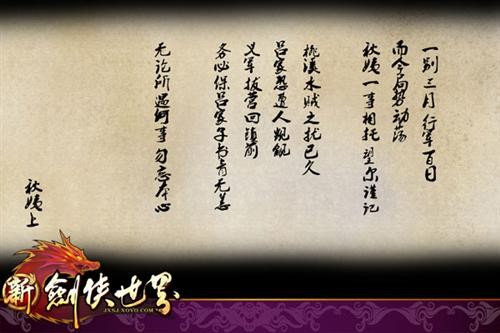 一别三月 行军百日
而今局势动荡
秋姨一事相托 望尔谨记
桃溪水贼之扰已久
吕家恐遭人觊觎
义军拔营回颍前
务必保吕家子书青无恙
无论所遇何事 勿忘本心
秋姨上
新剑侠世界
JXSJ.XOYO.COM